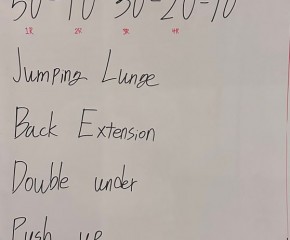 50-40-30-20-10
1R 2R 3R 4R
Jumping Lunge
Back Extension
Double under
Push up